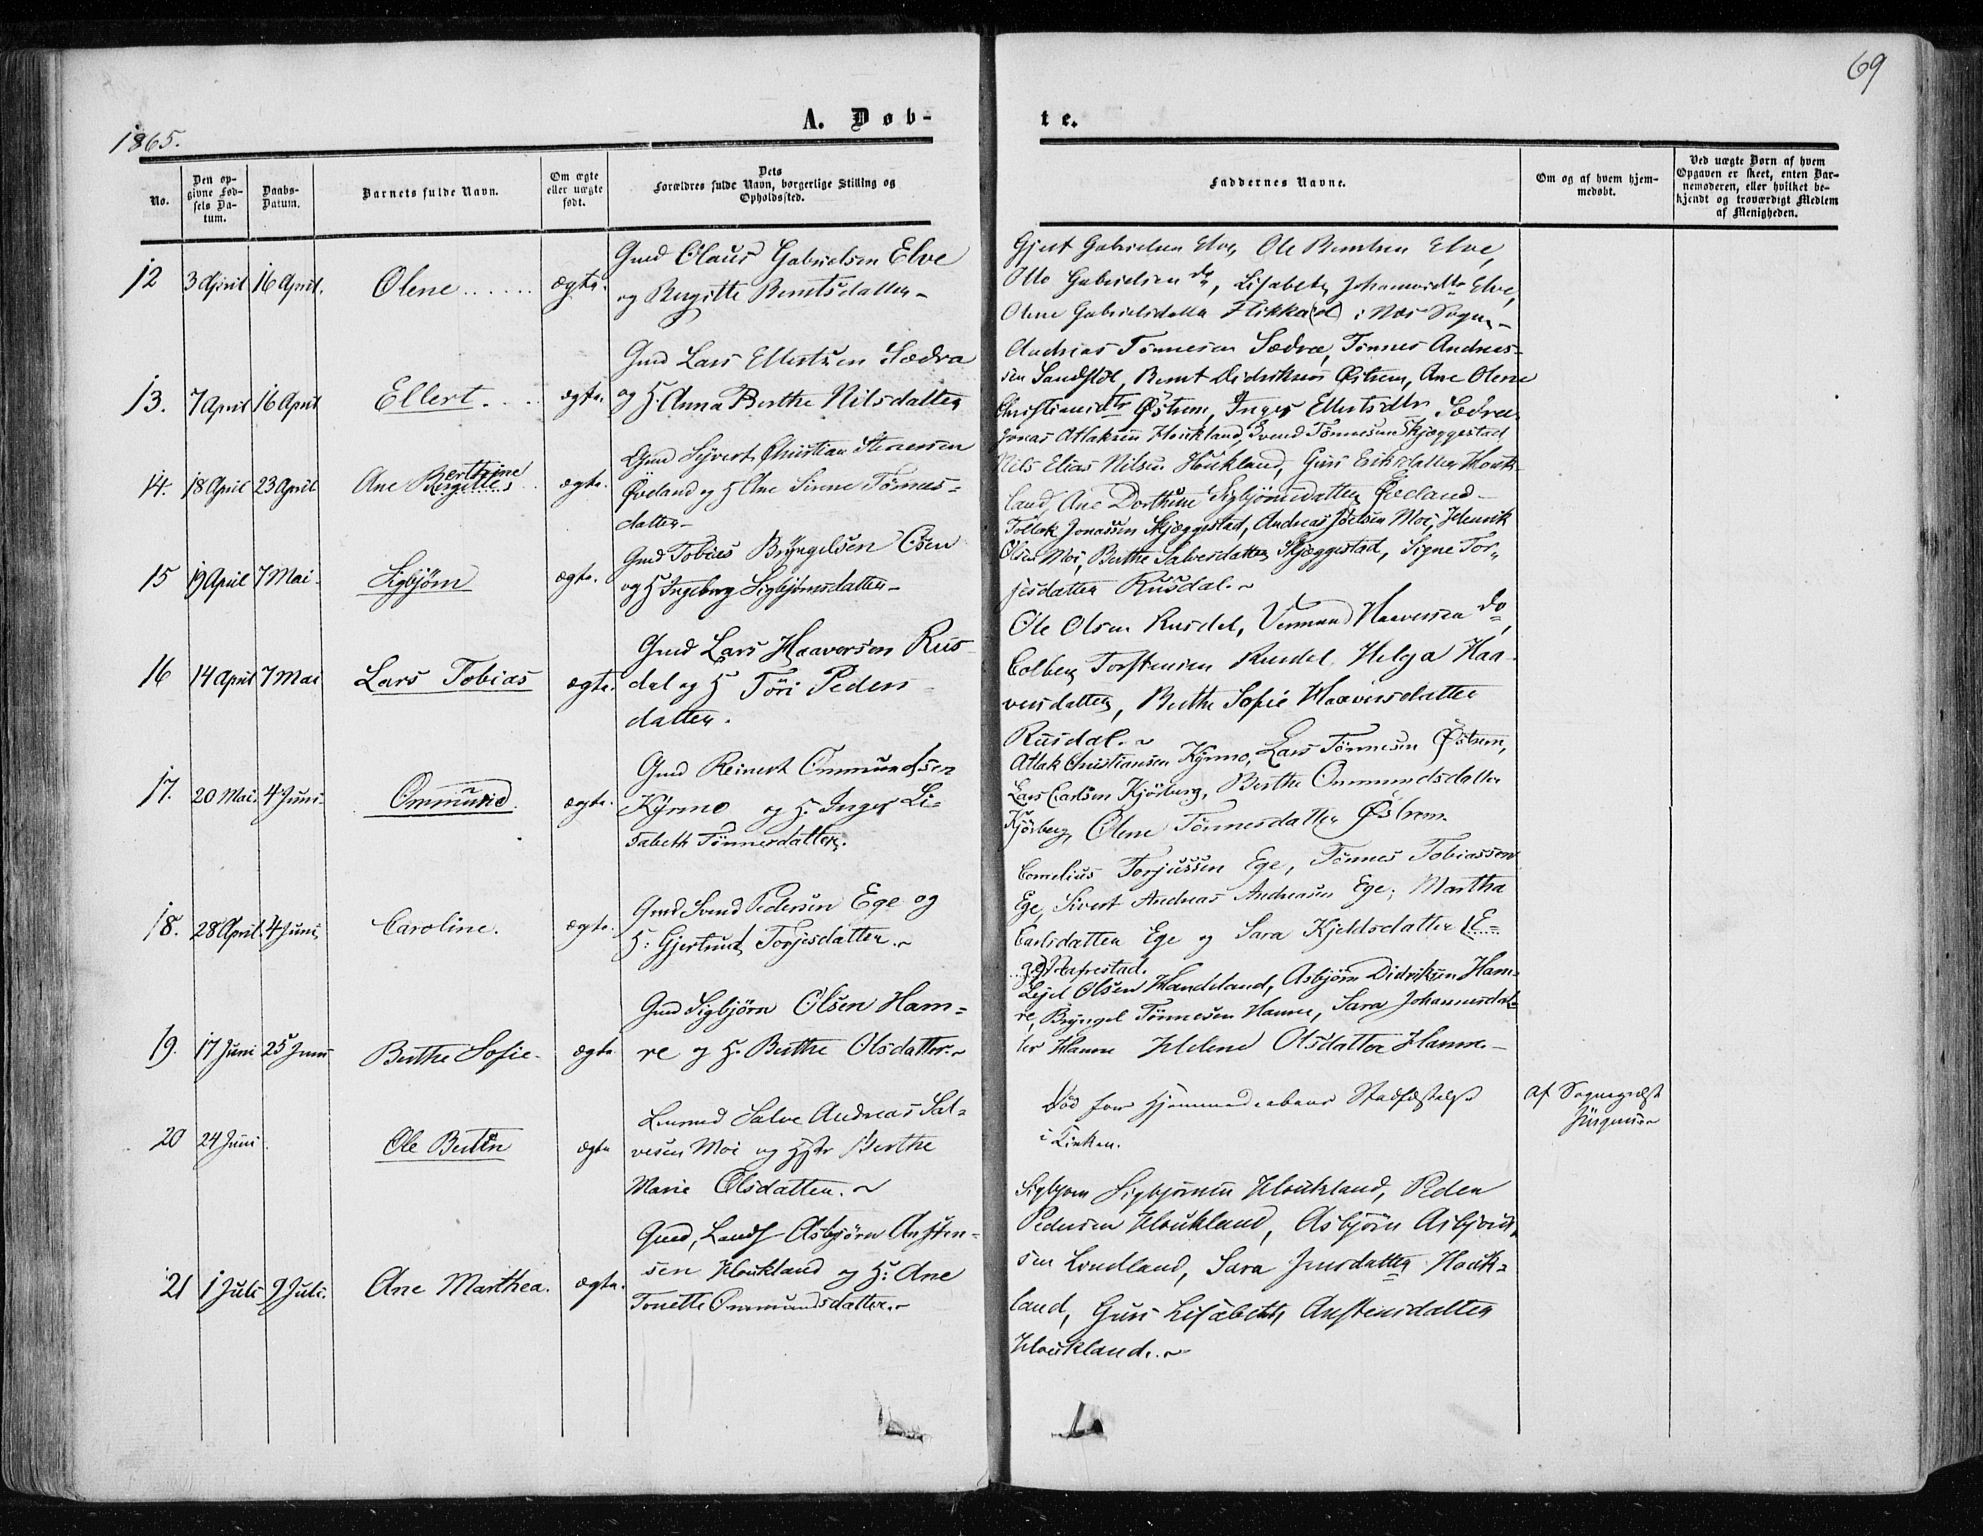 69
1865.
A. Døb-
te.
No.
Den op-
givne Fød-
sels Da-
tum.
Daabs-
Datum.
Barnets fulde Navn.
Om ægte
eller uægte
født.
Dets
Forældres fulde Navn, borgerlige Stilling og
Opholdssted.
Faddernes Navne.
Om og af hvem hjem-
medøbt.
Ved uægte Børn af hvem
Opgaven er skeet, enten Bar-
nemoderen, eller hvilket be-
kjendt og troværdigt Medlem
af Menigheden.
12 3 April 16 April. Olene ægte.
Gmd Olaus Gabrielsen Elve
og Birgitte Berntsdatter-
Gjert Gabrielsen Elve, Ole Berntsen Elve,
Otto Gabrielsen do, Lisabeth Johannesdtr Elve,
Olene Gabrielsdatter Flikka(d) i Næs Sogn-
13. 7 April 16 April Ellert. ægte.
Gmd Lars Ellertsen Sædra
og H: Anna Berthe Nilsdatter
Andreas Tønnesen Sædra, Tønnes Andreas-
sen Sandstøl, Bernt Didriksen Østrem, Ane Olene
Christiansdtr Østrem, Inger Ellertsdtr Sædra
14. 18 April 23 April Ane Birgitte erthine ægte.
Gmd Sivert Christian Stenersen
Øveland og H Ane Sirene Tønnes-
datter-
Jonas Atlaksen Houkland, Svend Tønnesen Skjæggestad
Nils Elias Nilsen Houkland, Guri Eriksdatter Houk-
land, Ane Dorthine Sigbjørnsdatter Øveland-
15 19 April 7 Mai. Sigbjørn ægte.
Gmd Tobias Bryngelsen Osen
og H Ingeborg Sigbjørnsdatter-
Tollak Jonassen Skjæggestad, Andreas Joelsen Moi, Henrik
Olsen Moi, Berthe Salvesdatter Skjæggestad, Signe Tor-
jesdatter Rusdal.
16 14 April 7 Mai Lars Tobias ægte.
Gmd Lars Haaversen Rus-
dal og H Tøri Peders-
datter.
Ole Olsen Rusdal, Vermund Haaversen do,
Colben Torstensen Rusdal, Helga Haa-
versdatter, Berthe Sofie Haaversdatter
Rusdal.
17. 20 Mai. 4 Juni. Ommund ægte.
Gmd Reinert Ommundsen
Kyrmo og H. Inger Li-
sabeth Tønnesdatter.
Atlak Christiansen Kyrmo, Lars Tønnesen Østrem,
Lars Carlsen Kjørberg, Berthe Ommundsdatter
Kjørberg, Olene Tønnesdatter Østrem.
18. 28 April. 4 Juni. Caroline. ægte.
Gmd Svend Pedersen Ege og
H: Gjertrud Torjesdatter.
Cornelius Torjussen Ege, Tønnes Tobiassen
Ege, Sivert Andreas Andreasen Ege, Martha
Carlsdatter Ege og Sara Kjeldsdatter (E-
ge) Refrestad.
19. 17 Juni 25 Juni Berthe Sofie. ægte
Gmd Sigbjørn Olsen Ham-
re og H. Berthe Olsdatter.
Lejel Olsen Handeland, Asbjørn Didriksen Ham-
re, Bryngel Tønnesen Hamre, Sara Johannesdat-
ter Hamre Helene Olsdatter Hamre-
20 24 Juni Ole Bertin ægte
Salve Andreas Sal-
vesen Moi og Berthe
Marie Olsdatter.
Død før Hjemmedaabens Stadfæstelse
i Kirken.
af Sogneprest
Jürgensen
21 1 Juli 9 Juli. Ane Marthea. ægte.
Gmd, Asbjørn Ansten-
sen Houkland og H: Ane
Tonette Ommundsdatter.
Sigbjørn Sigbjørnsen Houkland, Peder
Pedersen Houkland, Asbjørn Asbjørn-
sen Lindland, Sara Jensdatter Houk-
land, Guri Lisabeth, Anstensdatter
Houkland.